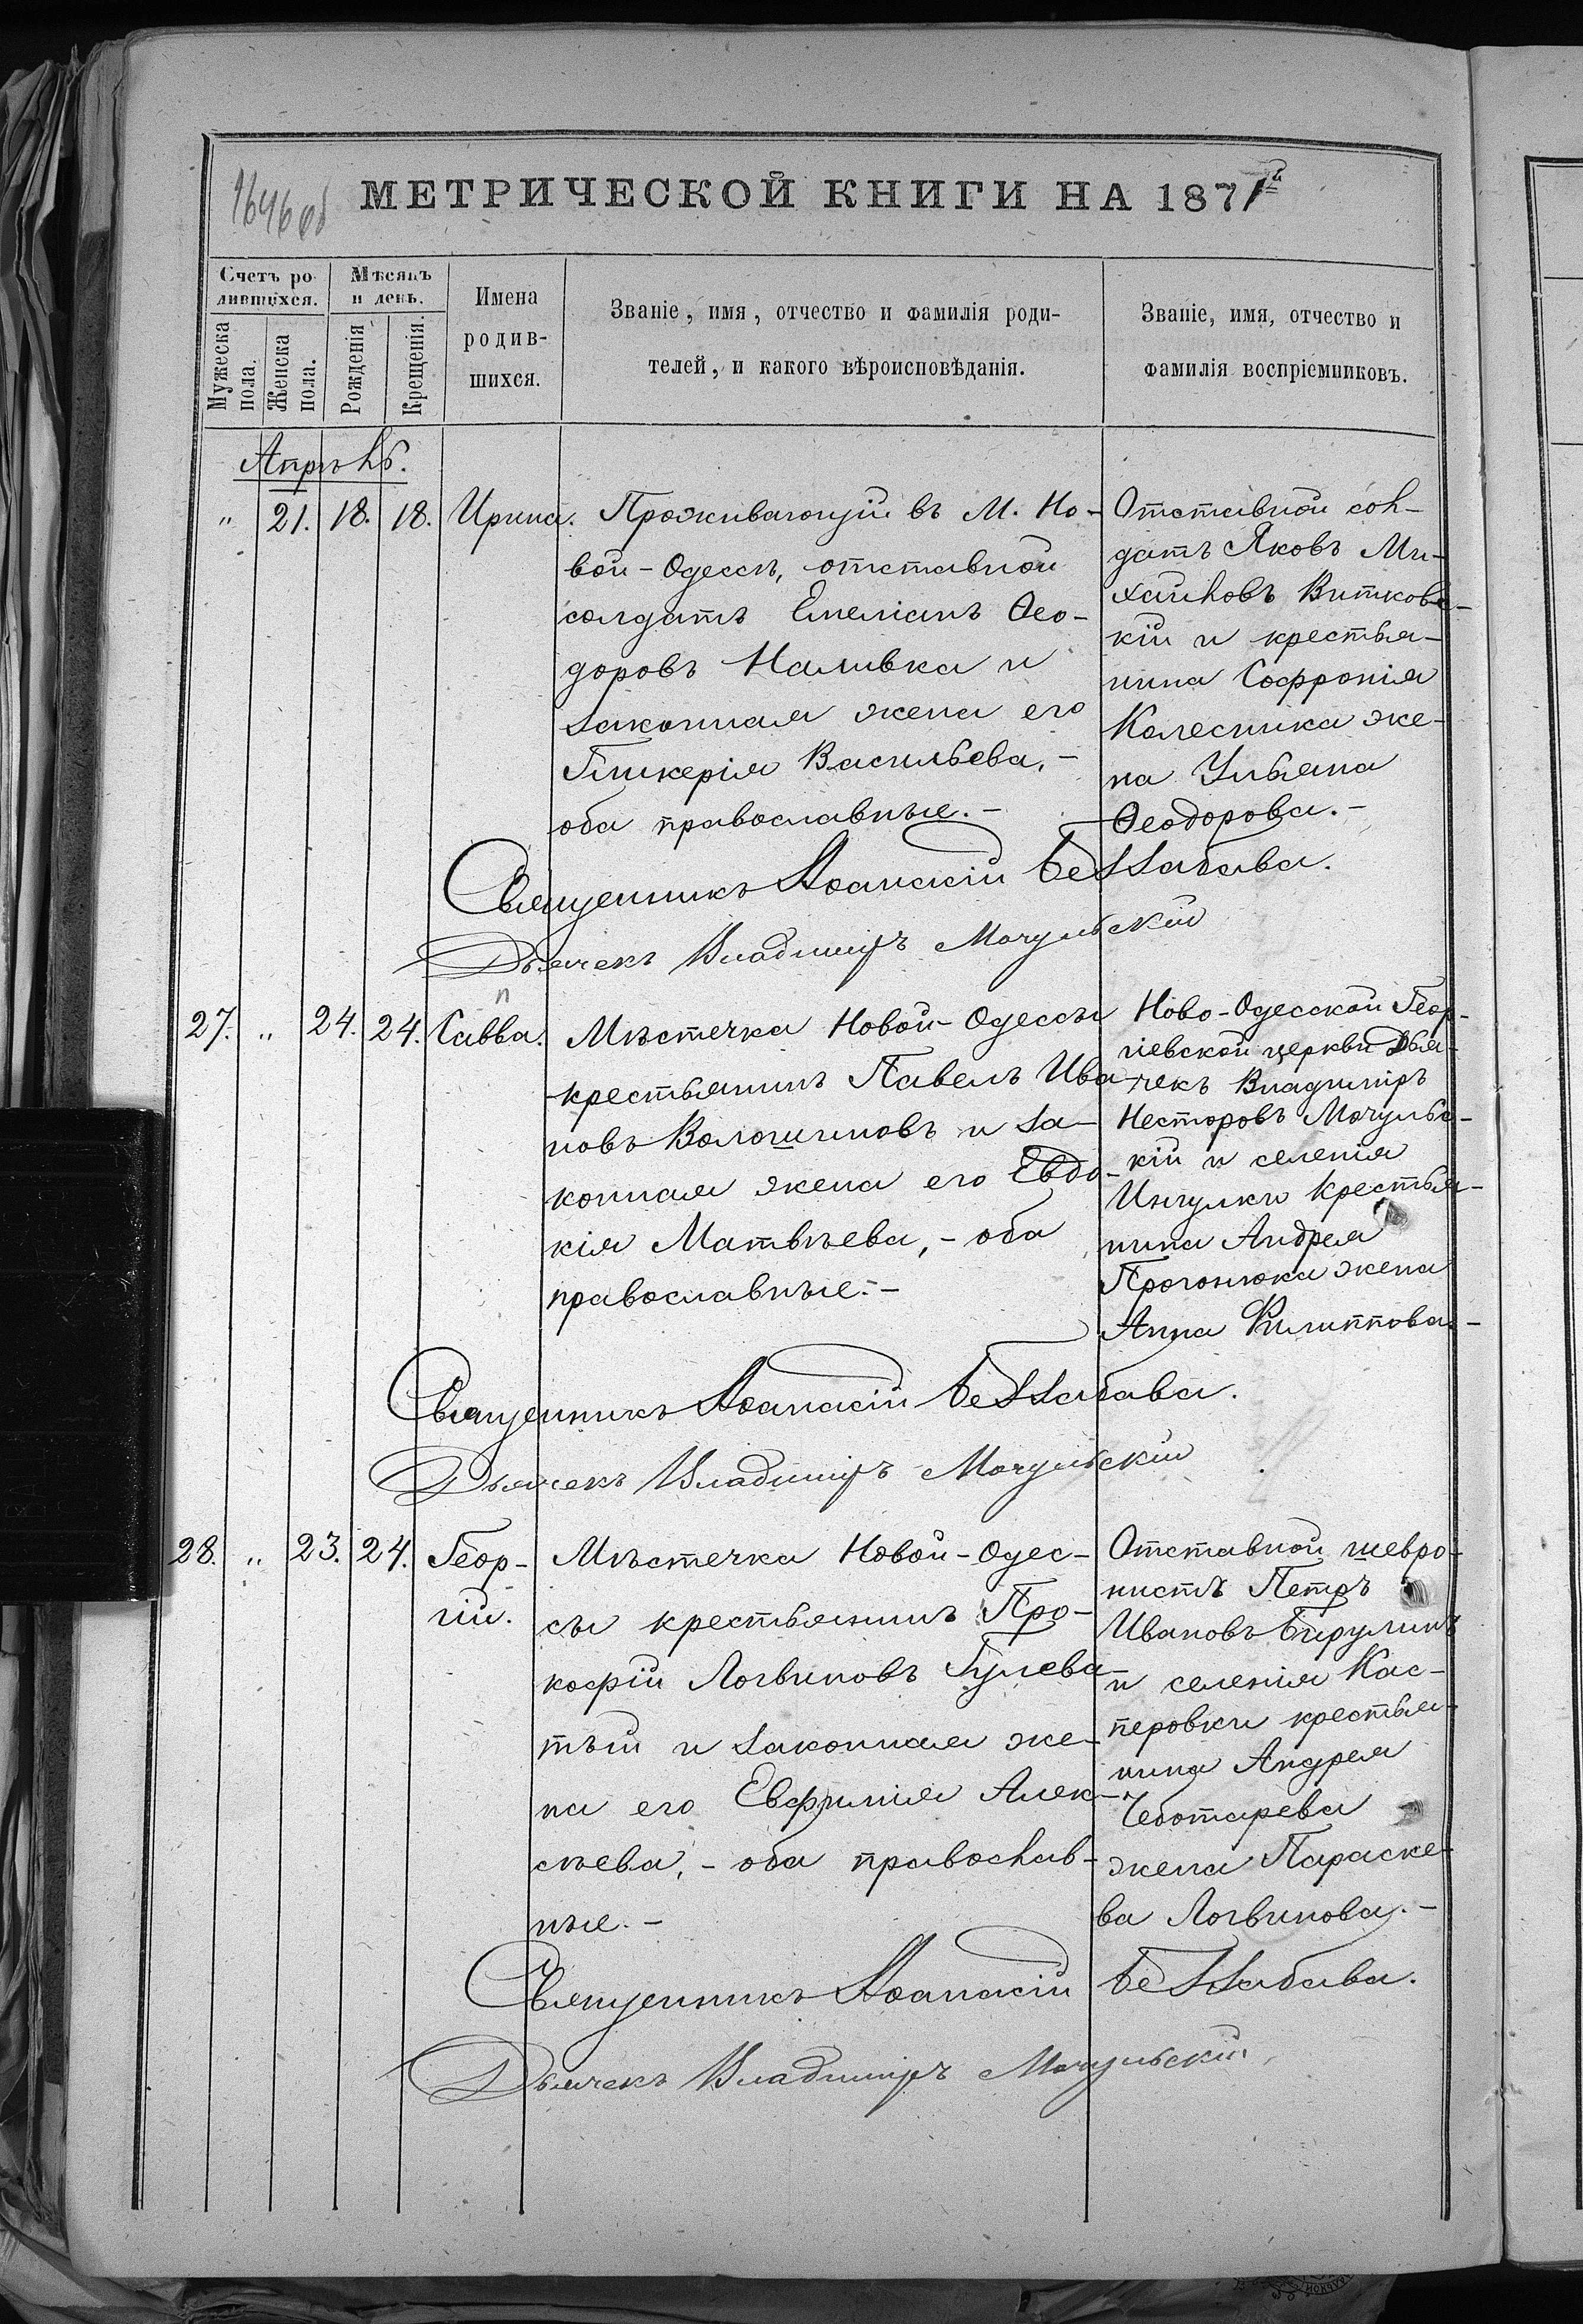 1646об
МЕТРИЧЕСКОЙ КНИГИ НА 1871й
Счетъ ро-
дившихся.
Мѣсяцъ
и день.
Мужеска
пола.
Женска
пола.
Рожденія
Крещенія.
Имена
родив-
шихся.
Званіе, имя, отчество и фамилія роди-
телей, и какого вѣроисповѣданія.
Званіе, имя, отчество и
фамилія воспріемниковъ.
Апрѣль.
" 21. 18. 18. Ирина.
Проживающій въ М. Но-
вой-Одессѣ, отставной
солдатъ Емеліанъ Ѳео-
доровъ Наливка и
законная жена его
Гликерія Васильева,-
оба православные.-
Отставной сол-
датъ Яковъ Ми-
хайловъ Витковс-
кій и крестья-
нина Софронія
Колесника же-
на Ульяна
Ѳеодорова.-
Священникъ Аѳанасій Беззабава.
Дьячекъ Владиміръ Мочульскій
27. " 24. 24. Савва.
п
Мѣстечка Новой-Одессы
крестьянинъ Павелъ Ива-
новъ Волошиновъ и за-
конная жена его Евдо-
кія Матвѣева,- оба
православные.-
Ново-Одесской Геор-
гіевской церкви Дья-
чекъ Владиміръ
Несторовъ Мочульс-
кій и селенія
Ингулки крестья-
нина Андрея
Прогонюка жена
Анна Филиппова.-
Священникъ Аѳанасій Беззабава.
Дьячекъ Владиміръ Мочульскій
28. " 23. 24. Геор-
гій.
Мѣстечка Новой-Одес-
сы крестьянинъ Про-
кофій Логвиновъ Гулева-
тый и законная же-
на его Евфимія Алек-
сѣева,- оба православ-
ные.-
Отставной шевро-
нистъ Петръ
Ивановъ Бирулинъ
и селенія Кас-
перовки крестья-
нина Андрея
Чеботарева
жена Параске-
ва Логвинова.-
Священникъ Аѳанасій Беззабава.
Дьячекъ Владиміръ Мочульскій